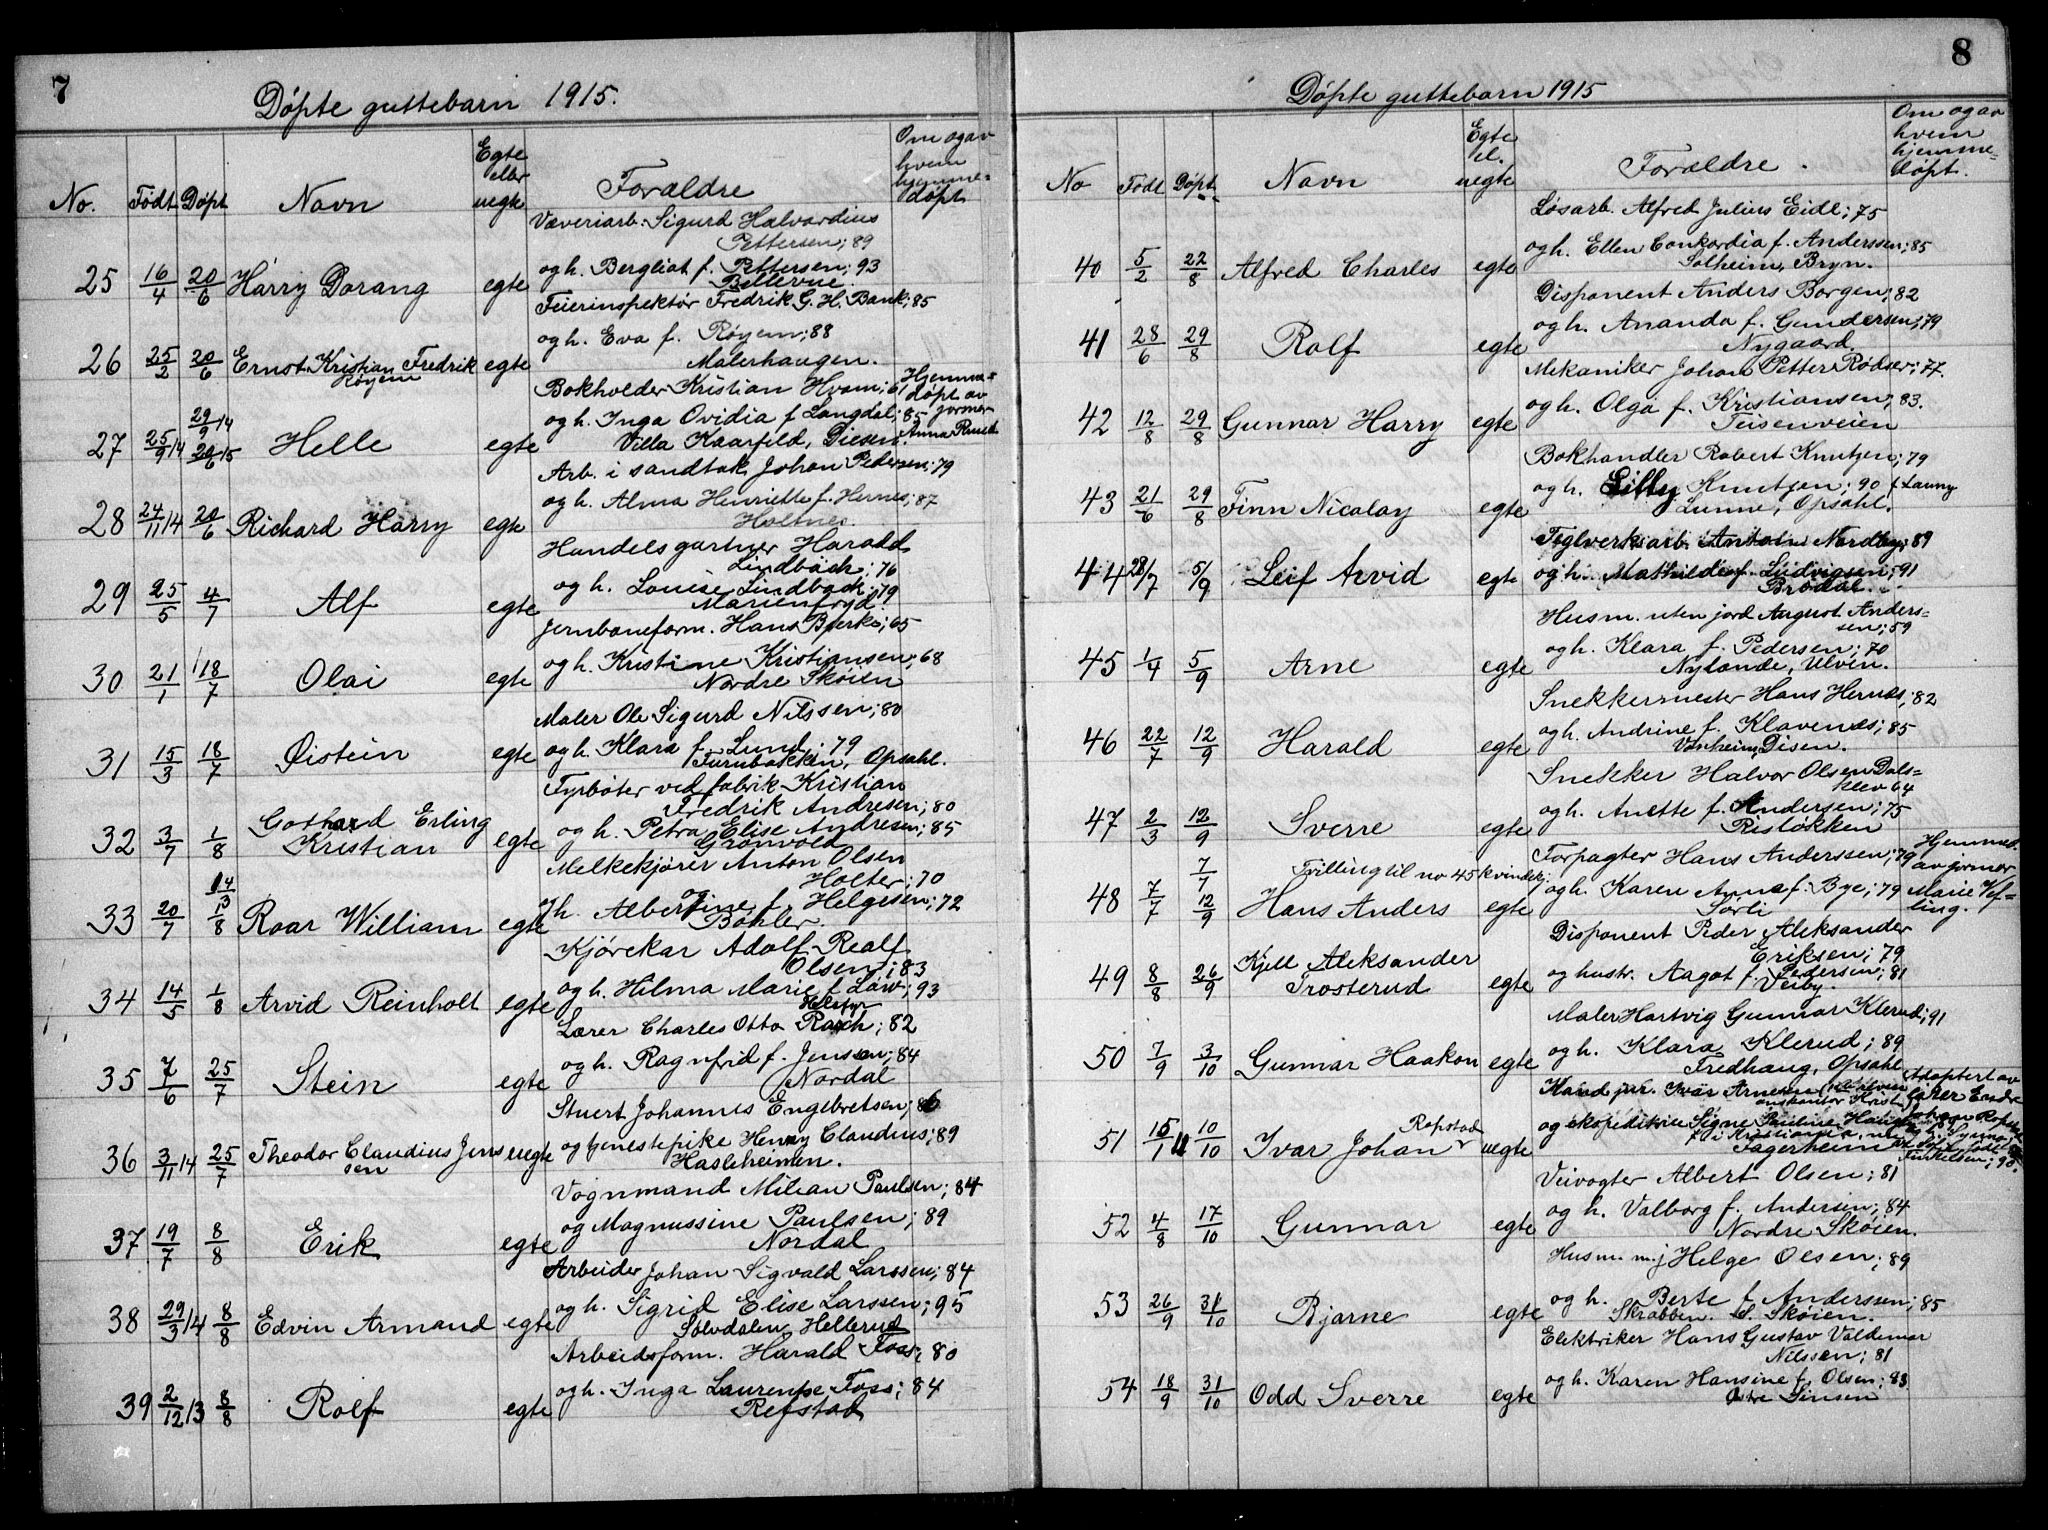 7
Døpte guttebarn 1915.
No.
Født
Døpt
Navn
Egte eller uegte
Forældre
Om og av hvem hjemme= døpt
Væveriarb. Sigurd Halvardius
Pettersen; 89
25 16/4 20/6 Harry Dorang egte og h. Bergliot f. Pettersen; 93
Bellevue.
Feierinspektør Fredrik G. H. Bank; 85
og h. Eva f. Røyem; 88
26 25/2 20/6 Ernst Kristian Fredrik egte Malerhaugen.
Røyem
Bokholder Kristian Hvam; 61 Hjemme=
døpt av
29/9 14 og h. Inga Ovidia f. Langdal; 85 jormor
27 25/9 14 20/6 15 Helle egte Villa Kaarfeld, Disen. Anna Ruud
Arb. i sandtak Johan Pedersen; 79
og h. Alma Henriette f. Hernes; 87
28 24/11 14 20/6 Richard Harry egte Holtnes.
Handelsgartner Harald
Lindbäck; 76
og h. Louise Lindback; 79
29 25/5 4/7 Alf egte Marienfryd.
Jernbaneform. Hans Bjerke; 65
og h. Kristine Kristiansen; 68
30 21/1 18/7 Olai egte Nordre Skøien
Maler Ole Sigurd Nilssen; 80
31 15/3 18/7 Øistein egte og h. Klara f. Lund; 79
Furubakken, Opsahl.
Fyrbøter ved fabrik Kristian
Fredrik Andresen; 80
Gothard Erling og h. Petra Elise Andresen; 85
32 3/7 1/8 Kristian egte Grønvold
Melkekjører Anton Olsen
Holter; 70
33 20/7 1/8 Roar William egte og h. Albertine f. Helgesen; 72
Bøhler.
Kjørekar Adolf Realf
Olsen; 83
34 14/5 1/8 Arvid Reinholt egte og h. Hilma Marie f. Løw; 93
Lærer Charles Otto Rasch; 82
og h. Ragnfrid f. Jenssen; 84
35 7/6 25/7 Stein egte Nordal
Stuert Johannes Engebretsen; 86
36 3/11 14 25/7 Theodor Claudius Jens uegte og tjenestepike Henny Claudius; 89
sen Hasleheimen.
Vognmand Milian Paulsen; 84
og Magnussine Paulsen; 89
37 19/7 8/8 Erik egte Nordal
Arbeider Johan Sigvald Larssen; 84
og h. Sigrid Elise Larssen; 95
38 29/3 14 8/8 Edvin Armand egte Solvdalen, Hellerud
Arbeidsform. Harald Foss; 80
og h. Inga Laurense Foss; 84
39 2/12 13 8/8 Rolf egte Refstad
8
Døpte guttebarn 1915
No
Født
Døpt.
Navn
Egte el. uegte
Forældre.
Om og av hvem hjemme= døpt.
Løsarb. Alfred Julius Eidl; 75
og h. Ellen Conkordia f. Anderssen; 85
40 5/2 22/8 Alfred Charles egte Solheim, Bryn.
Disponent Anders Borgen; 82
og h. Ananda f. Gundersen; 79
41 28/6 29/8 Rolf egte Nygaard
Mekaniker Johan Petter Rødser; 77.
og h. Olga f. Kristiansen; 83.
42 12/8 29/8 Gunnar Harry egte Teisenveien
Bokhandler Robert Knutzen; 79
og h. Lilly Knutzon; 90 f Launy
43 21/6 29/8 Finn Nicolay egte Lunne, Opsahl.
Teglverksarb. Anton Nordby; 89
44 28/7 5/9 Leif Arvid egte og h. Mathilde f. Ludvigsen; 91
Brødal.
Husm. uten jord August Anders=
sen; 59
og h. Klara f. Pedersen; 70
45 1/4 5/9 Arne egte Nylænde, Ulven.
Snekkermester Hans Hernæs; 82
og h. Andrine f. Klavenæs; 85
46 22/7 12/9 Harald egte Vonheim, Disen.
Snekker Halvor Olsen Dals=
klev 64
og h. Anette f. Andersen; 75
47 2/3 12/9 Sverre egte Risløkken
Forpagter Hans Anderssen; 79 Hjemmed.
av jormor
7/7 Tvilling til no 45 kvindekj.
48 7/7 12/9 Hans Anders egte og h. Karen Anna f. Bye; 79 Marie Vef=
Sørli ling.
Disponent Peder Aleksander
Eriksen; 79
Kjell Aleksander
49 8/8 26/9 Trosterud egte og hustr. Aagot f. Pedersen; 81
Veiby.
Maler Hartvig Gunnar Klerud; 91
50 7/9 3/10 Gunnar Haakon egte og h. Klara Klerud; 89
Fredhaug, Opsahl.
Hand. jur. Ivar Arnesen Adoptert av
lærer
og ekspeditrise Signe Pauline Johan
Ropstad i Kristiania,
51 15/1 11 10/10 Ivar Johan uegte Fagerheim
Veivogter Albert Olsen; 81
og h. Valborg f. Andersen; 84
52 4/8 17/10 Gunnar egte Nordre Skøien.
Husm. m. j Helge Olsen; 89
og h. Berte f. Anderssen; 85
53 26/9 31/10 Bjarne egte Skrabben. S. Skøien.
Elektriker Hans Gustav Valdemar
Nilssen; 81
og h. Karen Hansine f. Olsen; 83
54 18/9 31/10 Odd Sverre egte Østre Sinsen